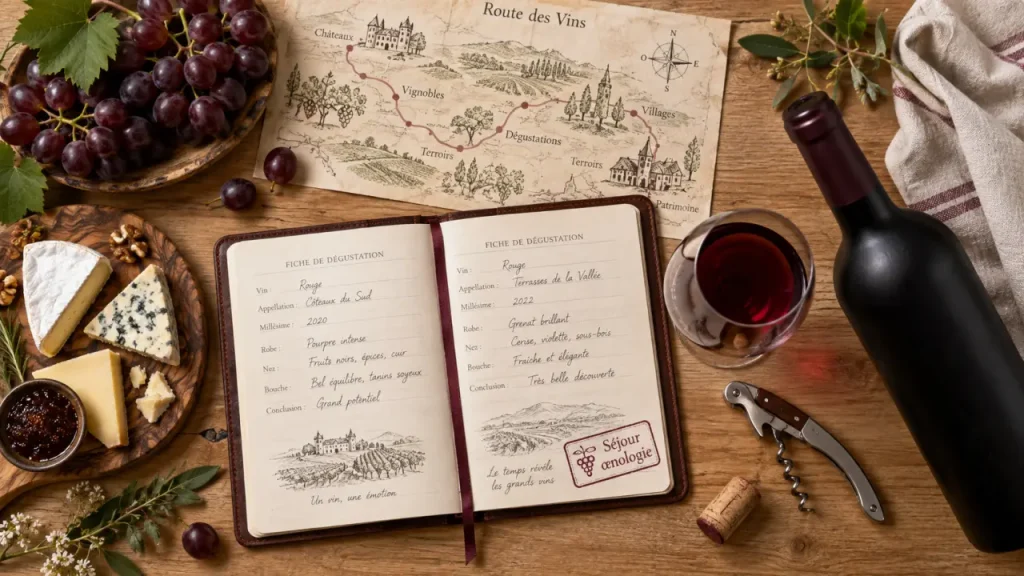 Route des Vins
Châteaux
Vignobles
Terroirs
Dégustations
Villages
Terroirs
Patrimoine
N
O
E
S
FICHE DE DÉGUSTATION
Vin : Rouge
Appellation : Côteaux du Sud
Millésime : 2020
Robe : Pourpre intense
Nez : Fruits noirs, épices, cuir
Bouche : Bel équilibre, tanins soyeux
Conclusion : Grand potentiel
Un vin, une émotion
FICHE DE DÉGUSTATION
Vin : Rouge
Appellation : Terrasses de la Vallée
Millésime : 2022
Robe : Grenat brillant
Nez : Cerise, violette, sous-bois
Bouche : Fraîche et élégante
Conclusion : Très belle découverte
Le temps révèle
les grands vins
Séjour
œnologie